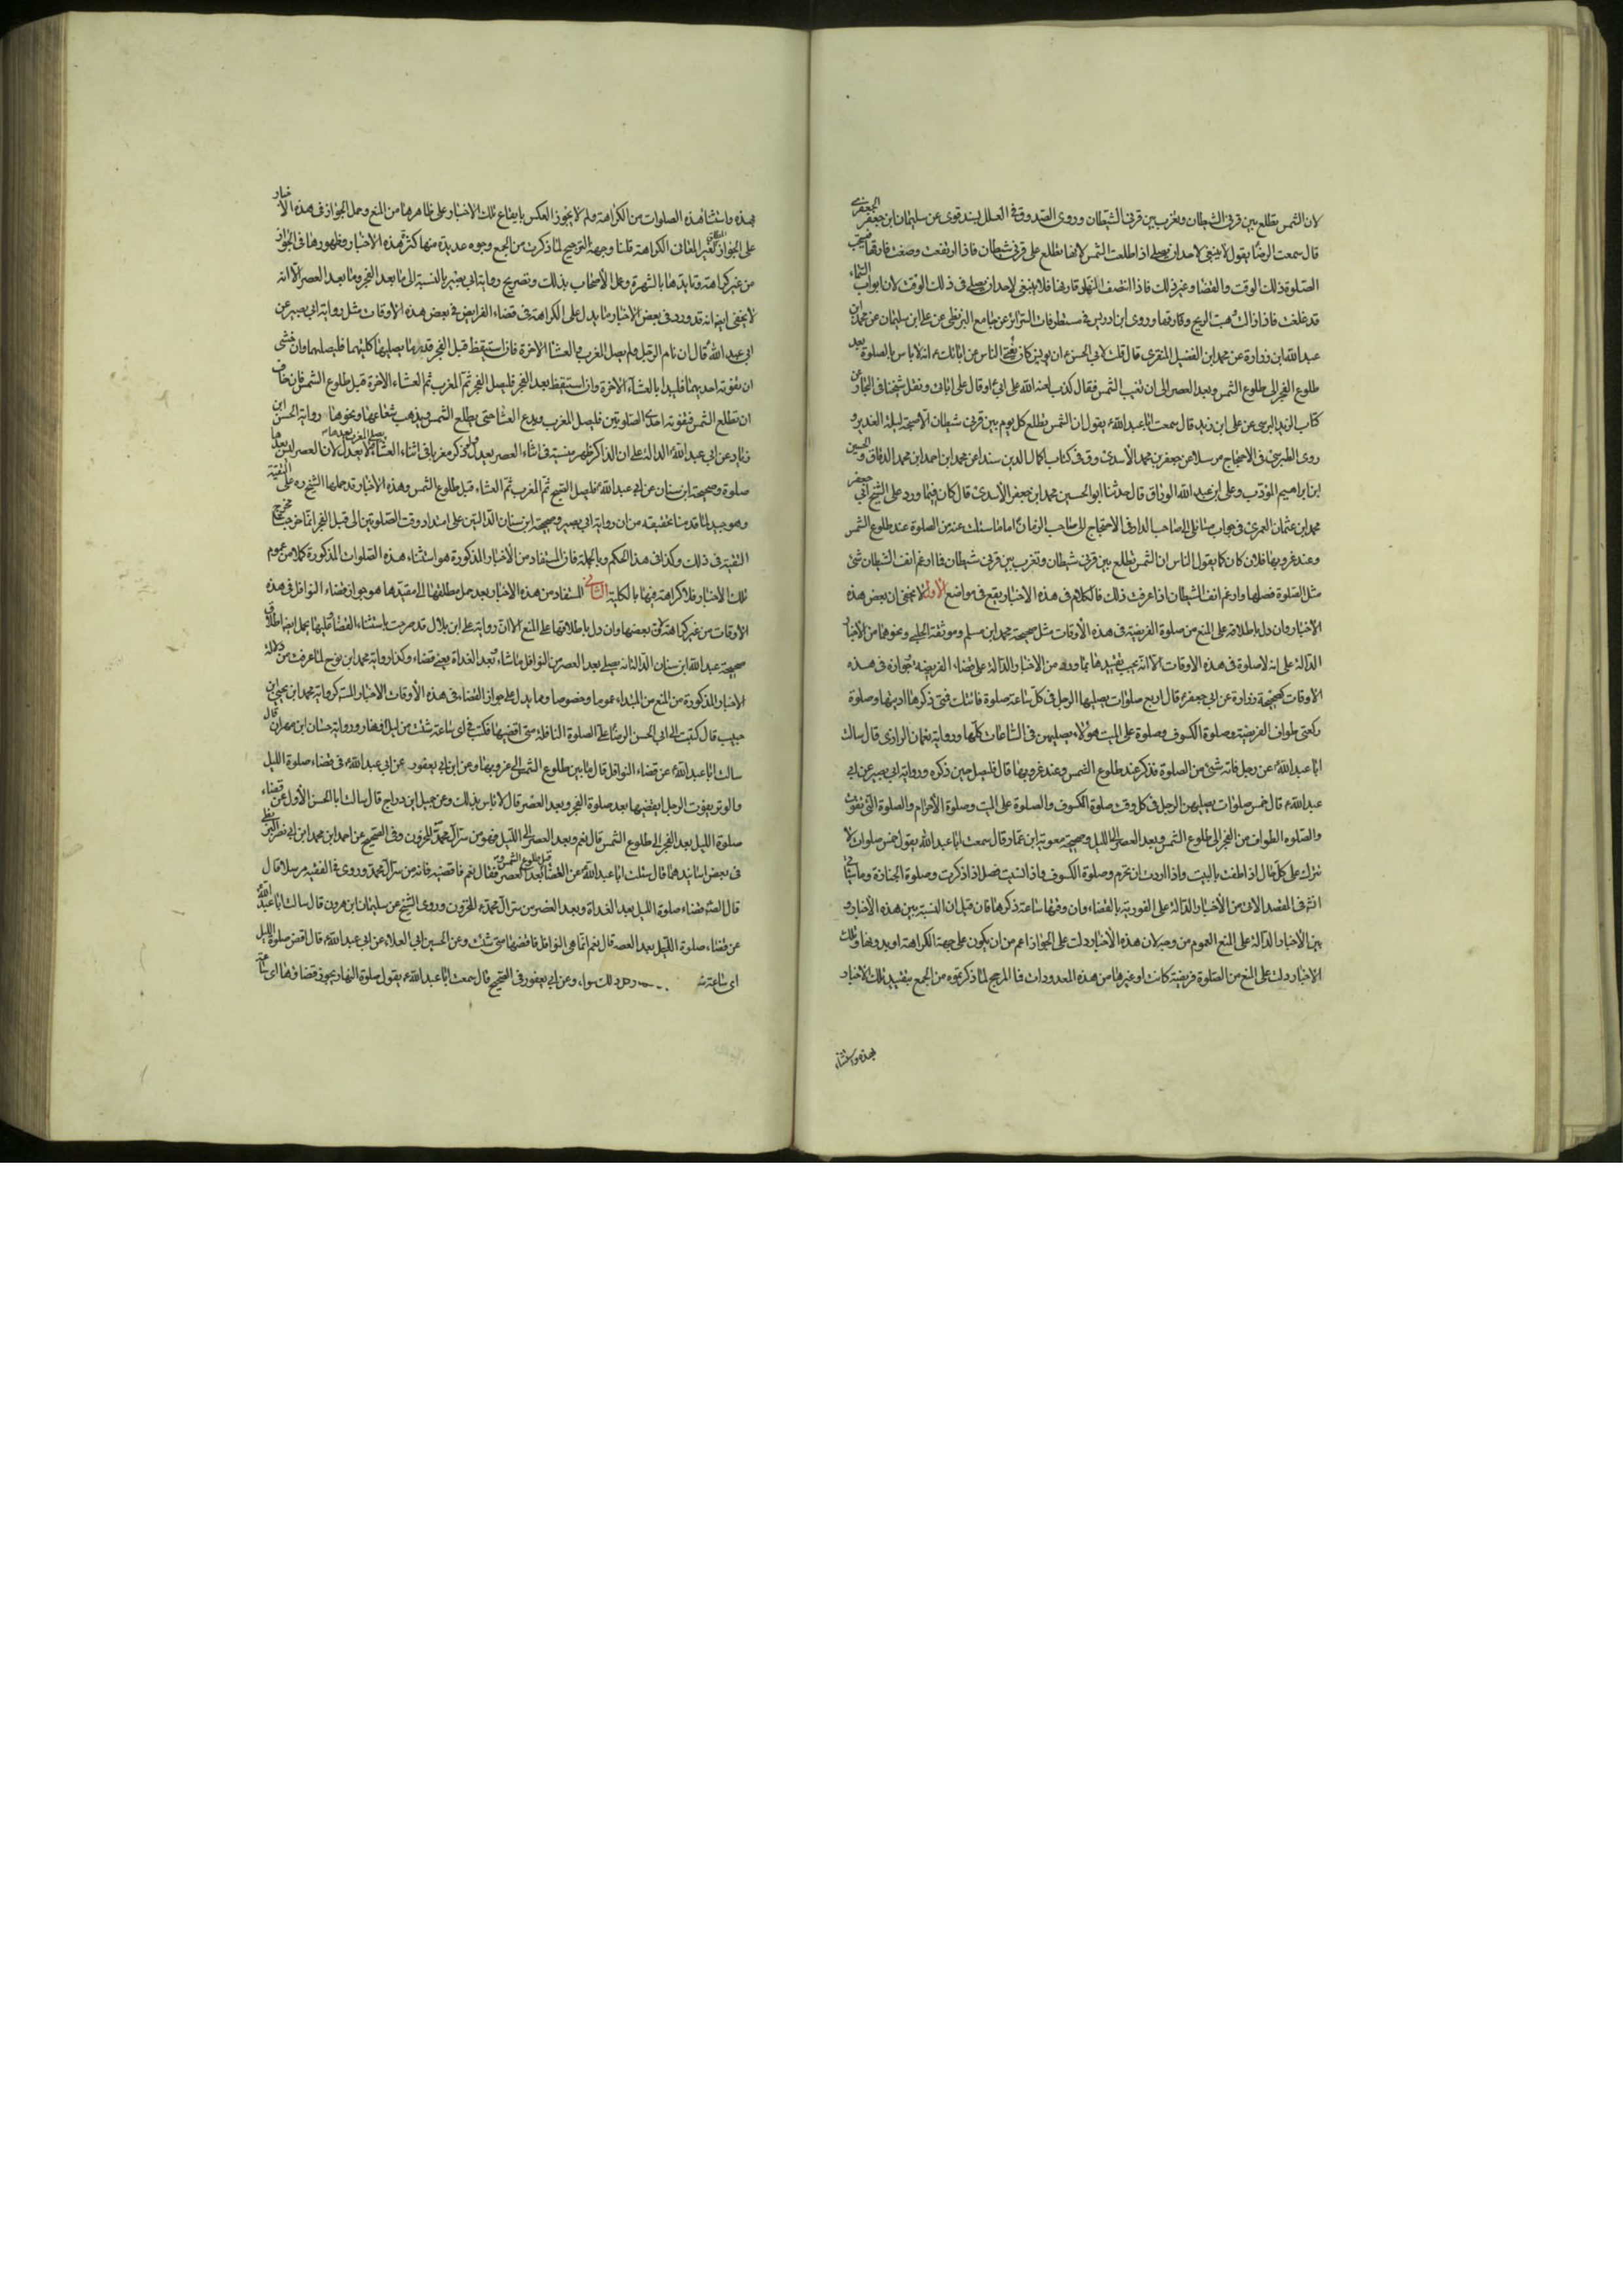 لان الشمس تطلع بين قرني الشيطان وتغرب بين قرني الشيطان وروى الصدوق في العلل بسند قوى عن سليمان ابن جعفر الجعفرى
قال سمعت الرضا يقول لا ينبغي لاحد ان يصلى اذا طلعت الشمس لانها تطلع على قرني شيطان فاذا ارتفعت وصفت فارقها فيستحب
الصلوة ذلك الوقت والقضا وغير ذلك فاذا انتصف النهار قارنها فلا ينبغي لاحد ان يصلى في ذلك الوقت لان ابواب السماء
قد غلقت فاذا زالت وهبت الريح فارقها وروى ابن ادريس في مستطرفات السرائر عن جامع البزنطى عن على ابن سليمان عن محمد ابن
عبد الله ابن زرارة عن محمد ابن الفضيل المنقرى قال قلت لابي الحسن ع ان يونس كان يفتي الناس عن ابائك ع انه لا باس بالصلوة بعد
طلوع الفجر الى طلوع الشمس وبعد العصر الى ان تغيب الشمس فقال كذب لعنه الله على ابي او قال على ابائى ونقل شيخنا في البحار عن
كتاب الزيد النرسى عن على ابن زيد قال سمعت ابا عبد الله ع يقول ان الشمس تطلع كل يوم بين قرني شيطان الا صبيحة ليلة القدر و
روى الطبرسى في الاحتجاج مرسلا عن جعفر بن محمد الأسدى وفى كتاب اكمال الدين سندا عن محمد ابن احمد ابن محمد الدقاق والحسين
ابن ابراهيم المؤدب وعلى ابن عبد الله الوراق قال حدثنا ابو الحسين محمد ابن جعفر الأسدى قال كان فيما ورد على الشيخ ابي جعفر
محمد ابن عثمان العمرى في جواب مسائلى الى صاحب الدار وفى الاحتجاج الى صاحب الزمان اما ما سئلت عنه من الصلوة عند طلوع الشمس
وعند غروبها فلان كان كما يقول الناس ان الشمس تطلع بين قرني شيطان وتغرب بين قرني شيطان فما ارغم انف الشيطان شئ
مثل الصلوة فصلها وارغم انف الشيطان اذا عرفت ذلك فالكلام في هذه الاخبار يقع في مواضع الأول لا يخفى ان بعض هذه
الاخبار وان دل باطلاقه على المنع من صلوة الفريضة في هذه الأوقات مثل صحيحة محمد ابن مسلم وموثقة الحلبي ونحوها من الأخبار
الدالة على انه لا صلوة في هذه الاوقات الا انه يجب تقييدها بما ورد من الاخبار الدالة على قضاء الفريضة وجوازه في هذه
الأوقات كصحيحة زرارة عن ابي جعفر ع قال اربع صلوات يصليها الرجل في كل ساعة صلوة فاتتك فمتى ذكرتها اديتها وصلوة
ركعتى طواف الفريضة وصلوة الكسوف وصلوة على الميت هؤلاء يصليهن في الساعات كلها ورواية نعمان الرازى قال سالت
ابا عبد الله ع عن رجل فاته شئ من الصلوة فذكر عند طلوع الشمس وعند غروبها قال فليصل حين ذكره ورواية ابي بصير عن ابي
عبد الله ع قال خمس صلوات يصليهن الرجل في كل وقت صلوة الكسوف والصلوة على الميت وصلوة الأحرام والصلوة التى تفوت
والصلوة الطواف من الفجر الى طلوع الشمس وبعد العصر الى الليل وصحيحة معوية ابن عمار وقال سمعت ابا عبد الله يقول خمس صلوات لا
تترك على كل حال اذا طفت بالبيت واذا اردت ان تحرم وصلوة الكسوف واذا نسيت فصل اذا ذكرت وصلوة الجنازة وما سياتى
انشَ في المقصد الاتى من الأخبار الدالة على الفورية بالقضاء وان وقتها ساعة ذكرها فان قيل ان النسبة بين هذه الأخبار و
بين الأخبار الدالة على المنع العموم من وجه لان هذه الأخبار دلت على الجواز اعم من ان يكون على جهة الكراهة او بدونها وتلك
الاخبار دلت على المنع من الصلوة فريضة كانت او غيرها من هذه المعدودات فما المرجح لما ذكرتموه من الجمع بتقييد تلك الاخبار
بهذه واستثناء
بهذه واستثنا هذه الصلوات من الكراهة ولم لا يجوز العكس بابقاء تلك الاخبار على ظاهرها من المنع وحمل الجواز في هذه الأخبار
على الجواز الغير المنافى الكراهة قلنا وجهة الترجيح لما ذكرت من الجمع وجوه عديدة منها كثرة هذه الاخبار وظهورها في الجواز
من غير كراهة وتايدها بالشهرة وعمل الأصحاب بذلك وتصريح رواية ابي بصير بالنسبة الى ما بعد الفجر وما بعد العصر الا انه
لا يخفى ايضا انه قد ورد في بعض الأخبار ما يدل على الكراهة في قضاء الفرايض في بعض هذه الأوقات مثل رواية ابي بصير عن
ابي عبد الله ع قال ان نام الرجل ولم يصل المغرب والعشاء الاخرة فان استيقظ قبل الفجر قدر ما يصليها كلتيهما فليصليهما وان خشى
ان تفوته احديهما فليبدا بالعشاء الاخرة وان استيقظ بعد الفجر فليصل الفجر ثم المغرب ثم العشاء الاخرة قبل طلوع الشمس فان خاف
ان تطلع الشمس فتفوته احدى الصلوتين فليصل المغرب ويدع العشاء حتى يطلع الشمس ويذهب شعاعها ونحوها رواية الحسن ابن
زياد عن ابي عبد الله ع الدالة على ان الذاكر ظهر منسية في اثناء العصر يعدل ولو ذكر مغربا في اثناء العشاء يصلى المغرب بعدها ولا يعدل لان العصر ليس بعدها
صلوة وصحيحة ابن سنان عن ابي عبد الله ع فليصل الصبح ثم المغرب ثم العشاء قبل طلوع الشمس وهذه الأخبار قد حملها الشيخ ره على التقية
وهو جيد لما قدمنا تحقيقه من ان رواية ابي بصير وصحيحة ابن سنان الدالتين على امتداد وقت الصلوتين الى قبل الفجر انما خرجتا مخرج
التقية في ذلك وكذا في هذا الحكم وبالجملة فان المستفاد من الأخبار المذكورة هو استثناء هذه الصلوات المذكورة كملا من عموم
تلك الأخبار فلا كراهة فيها بالكلية الثانى المستفاد من هذه الاخبار بعد حمل مطلقها الى مقيدها هو جواز قضاء النوافل في هذه
الاوقات من غير كراهة لان بعضها وان دل باطلاقها على المنع الا ان رواية على ابن بلال قد صرحت باستثناء القضا وعليها يحمل ايضا اطلاق
صحيحة عبد الله ابن سنان الدالة انه يصلى بعد العصر من النوافل ما شاء وبعد الغداة يعنى قضاء وكذا رواية محمد ابن فرج لما عرفت من دلالة
الأخبار المذكورة من المنع من المبتداء عموما وخصوصا ومما يدل على جواز القضاء في هذه الأوقات الاخبار كرواية محمد ابن يحيى ابن
حبيب قال كتبت الى ابي الحسن الرضا ع على الصلوة النافلة متى اقضيها فكتب في اى ساعة شئت من ليل او نهار ورواية حسان ابن مهران قال
سالت ابا عبد الله ع عن قضاء النوافل قال ما بين طلوع الشمس الى غروبها وعن ابن ابي يعفور عن ابي عبد الله ع في قضاء صلوة الليل
والوتر يفوت الرجل ايقضيها بعد صلوة الفجر وبعد العصر قال لا باس بذلك وعن جميل ابن دراج قال سالت ابا الحسن الأول عن قضاء
صلوة الليل بعد الفجر الى طلوع الشمس قال نعم وبعد العصر الى الليل فهو من سر آل محمد المخزون وفى الصحيح عن احمد ابن محمد ابن ابي نصر البزنطى
في بعض اسانيدهما قال سئلت ابا عبد الله ع عن القضا قبل طلوع الشمس وبعد العصر فقال نعم فاقضيه فانه من سر آل محمد وروى في الفقيه مرسلا قال
قال الصادق قضاء صلوة الليل بعد الغداة وبعد العصر من سر آل محمد ع المخزون وروى الشيخ عن سليمان ابن هرون قال سالت ابا عبد الله
عن قضاء صلوة الليل بعد العصر قال نعم انما هى النوافل فاقضها متى شئت وعن الحسين ابي العلاء عن ابي عبد الله ع قال اقض صلوة الليل
اى ساعة ذلك سواء وعن ابي يعفور في الصحيح قال سمعت ابا عبد الله ع يقول صلوة النهار يجوز قضاؤها اى ساعة